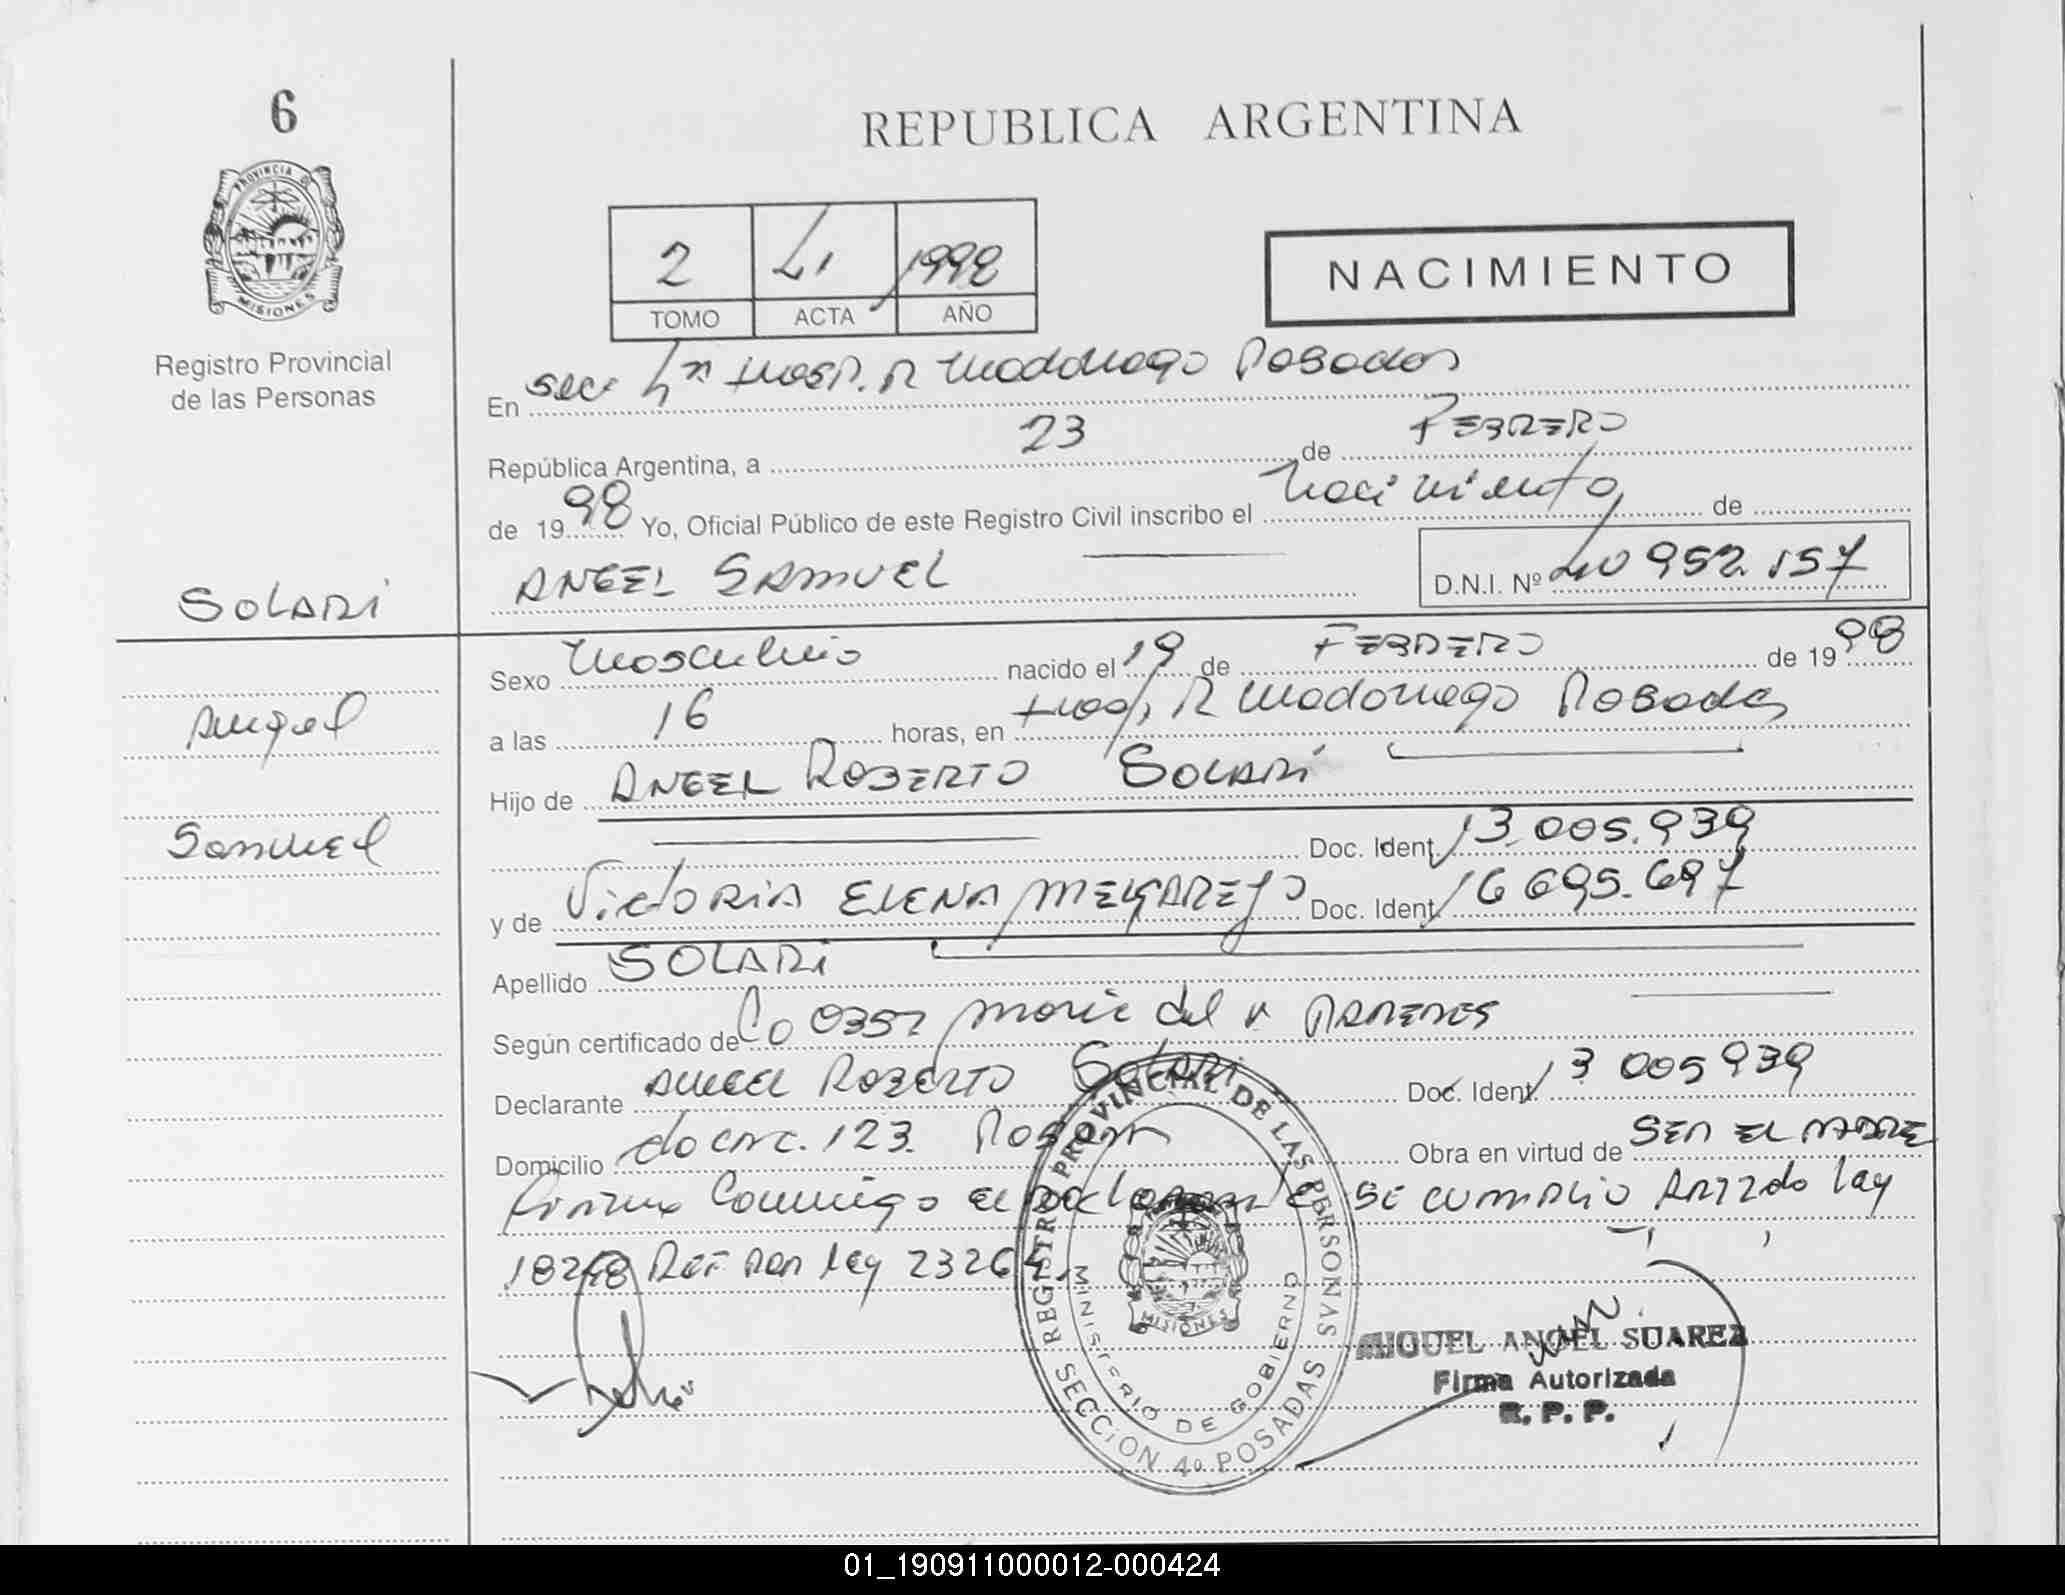 6
REPUBLICA ARGENTINA
PROVINCIA DE
MISIONES
Registro Provincial
de las Personas
2 4 1998
TOMO ACTA AÑO
NACIMIENTO
En sec 4ª Hosp. R Madariaga Posadas
República Argentina, a 23 de FEBRERO
de 1998 Yo, Oficial Público de este Registro Civil inscribo el Nacimiento de
SOLARI
ANGEL SAMUEL D.N.I. Nº 40 952.157
Sexo Masculino nacido el 19 de FEBRERO de 1998
Angel
a las 16 horas, en Hosp. R Madariaga Posadas
Hijo de ANGEL ROBERTO SOLARI
Samuel
Doc. Ident. 13.005.939
y de VICTORIA ELENA MELGAREJO Doc. Ident. 16 695.697
Apellido SOLARI
Según certificado de Co 0357 Maria del V PAREDES
Declarante ANGEL ROBERTO Solari Doc. Ident. 13 005 939
Domicilio do CHC. 123. Posadas Obra en virtud de SER EL PADRE
Firma Conmigo el Declarante SE CUMPLIO ART 2do ley
18248 REF POR ley 23264.
REGISTRO PROVINCIAL DE LAS PERSONAS
MINISTERIO DE GOBIERNO
MISIONES
SECCION 4º POSADAS
MIGUEL ANGEL SUAREZ
Firma Autorizada
R. P. P.
01_190911000012-000424